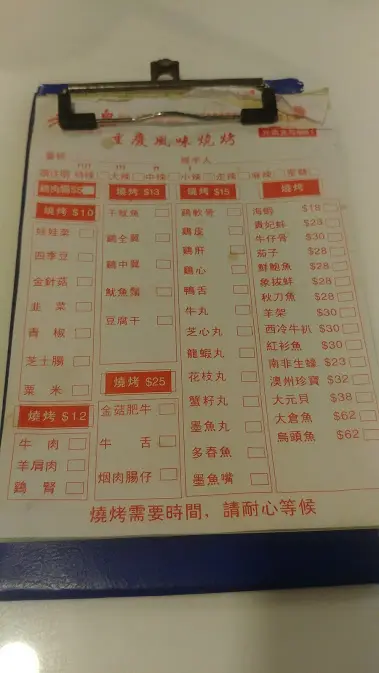 重慶風味燒烤
特辣 大辣 中辣 小辣 走辣
燒烤 $10
娃娃菜
四季豆
金針菇
韭菜
青椒
芝士腸
粟米
燒烤 $12
牛肉
羊肩肉
鷄腎
燒烤 $13
干魷魚
鷄全翼
鷄中翼
魷魚鬚
豆腐干
燒烤 $25
金菇肥牛
牛舌
烟肉腸仔
燒烤 $15
鷄軟骨
鷄皮
鷄肝
鷄心
鴨舌
牛丸
芝心丸
龍蝦丸
花枝丸
蟹籽丸
墨魚丸
多春魚
墨魚嘴
燒烤
海蝦 $18
貴妃蚌 $23
牛仔骨 $30
茄子 $28
鮮鮑魚 $28
象拔蚌 $28
秋刀魚 $28
羊架 $30
西冷牛扒 $30
紅衫魚 $30
南非生蠔 $23
澳州珍寶 $32
大元貝 $38
大倉魚 $62
烏頭魚 $62
燒烤需要時間，請耐心等候